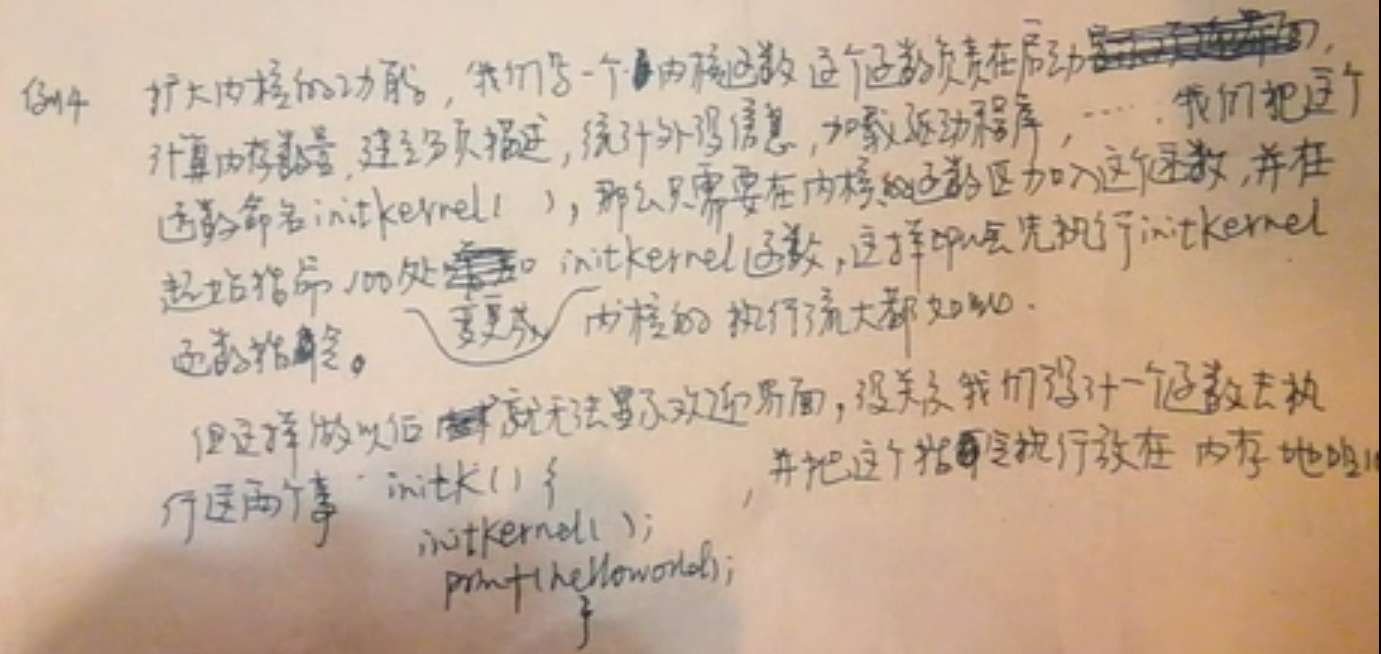 例4 扩大内核的功能，我们写一个内核函数 这个函数负责在启动时，
计算内存数量，建立分页描述，统计外设信息，加载驱动程序，……. 我们把这个
函数命名initkernel( )，那么只需要在内核的函数区加入这个函数，并在
起始指令100处 变更成 initkernel函数，这样即会先执行initkernel
函数指令。 内核的执行流大都如此.
但这样做以后 就无法显示欢迎界面，没关系 我们设计一个函数去执
行这两个事 initk( ) { ，并把这个指令执行放在 内存地址
initkernel( );
print(helloworld);
}